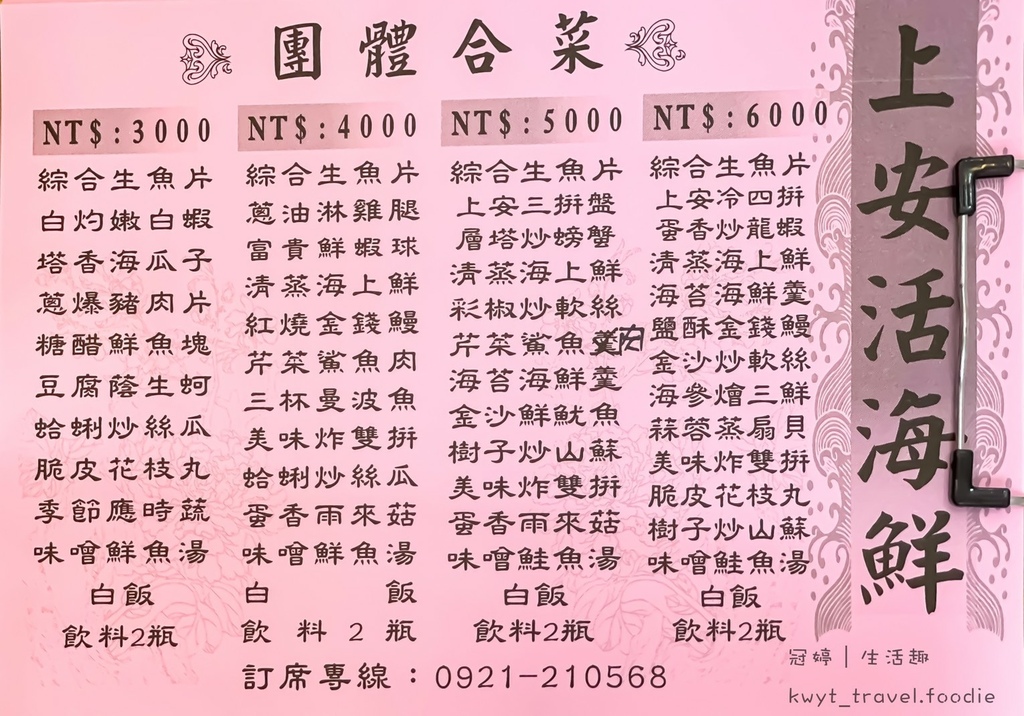 團體合菜
NT$:3000
綜合生魚片
白灼嫩白蝦
塔香海瓜子
蔥爆豬肉片
糖醋鮮魚塊
豆腐蔭生蚵
蛤蜊炒絲瓜
脆皮花枝丸
季節應時蔬
味噌鮮魚湯
白飯
飲料2瓶
NT$:4000
綜合生魚片
蔥油淋雞腿
富貴鮮蝦球
清蒸海上鮮
紅燒金錢鰻
芹菜鯊魚肉
三杯曼波魚
美味炸雙拼
蛤蜊炒絲瓜
蛋香雨來菇
味噌鮮魚湯
白飯
飲料2瓶
NT$:5000
綜合生魚片
上安三拼盤
層塔炒螃蟹
清蒸海上鮮
彩椒炒軟絲
芹菜鯊魚羹肉
海苔海鮮羹
金沙鮮魷魚
樹子炒山蘇
美味炸雙拼
蛋香雨來菇
味噌鮭魚湯
白飯
飲料2瓶
NT$:6000
綜合生魚片
上安冷四拼
蛋香炒龍蝦
清蒸海上鮮
海苔海鮮羹
鹽酥金錢鰻
金沙炒軟絲
海參燴三鮮
蒜蓉蒸扇貝
美味炸雙拼
脆皮花枝丸
樹子炒山蘇
味噌鮭魚湯
白飯
飲料2瓶
訂席專線：0921-210568
上安活海鮮
冠婷｜生活趣
kwyt_travel.foodie